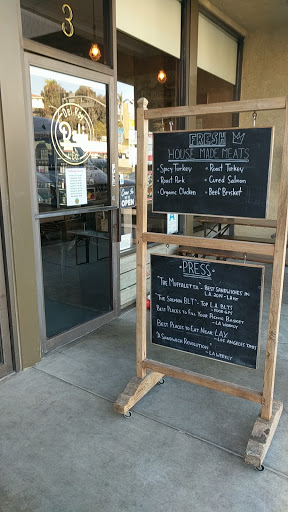 3
Del Rey
Deli
OPEN
FRESH
HOUSE MADE MEATS
• Spicy Turkey
• Roast Turkey
• Roast Pork
• Cured Salmon
• Organic Chicken
• Beef Brisket
• PRESS •
"The Muffaletta" - Best Sandwiches in
"The Salmon BLT" - Top L.A. BLTs
Best Places to Fill Your Picnic Basket
- LA Weekly
Best Places to Eat Near LAX
- Los Angeles Times
"A Sandwich Revolution"
- LA Weekly